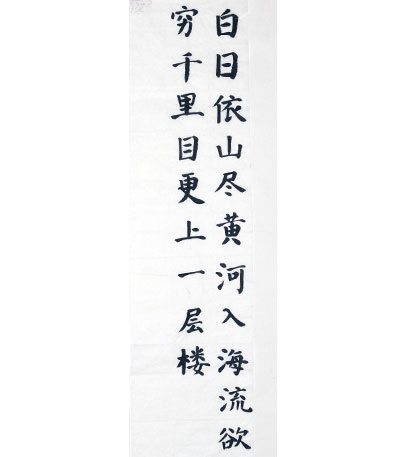 白日依山尽黄河入海流欲
穷千里目更上一层楼